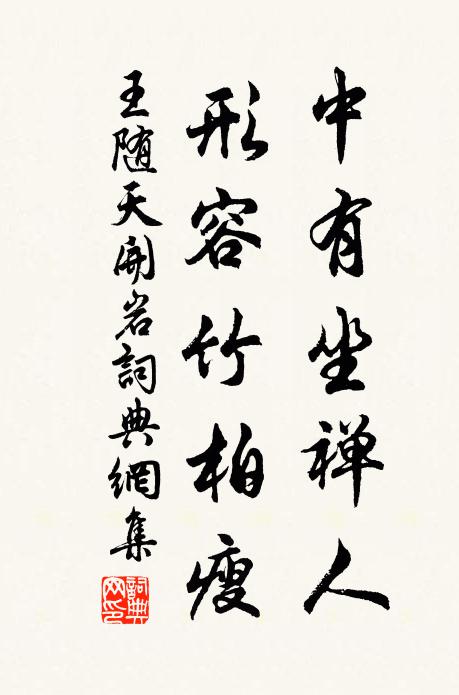 中有坐禅人
形容竹柏瘦
王随天開岩詞典網集
詞典網印